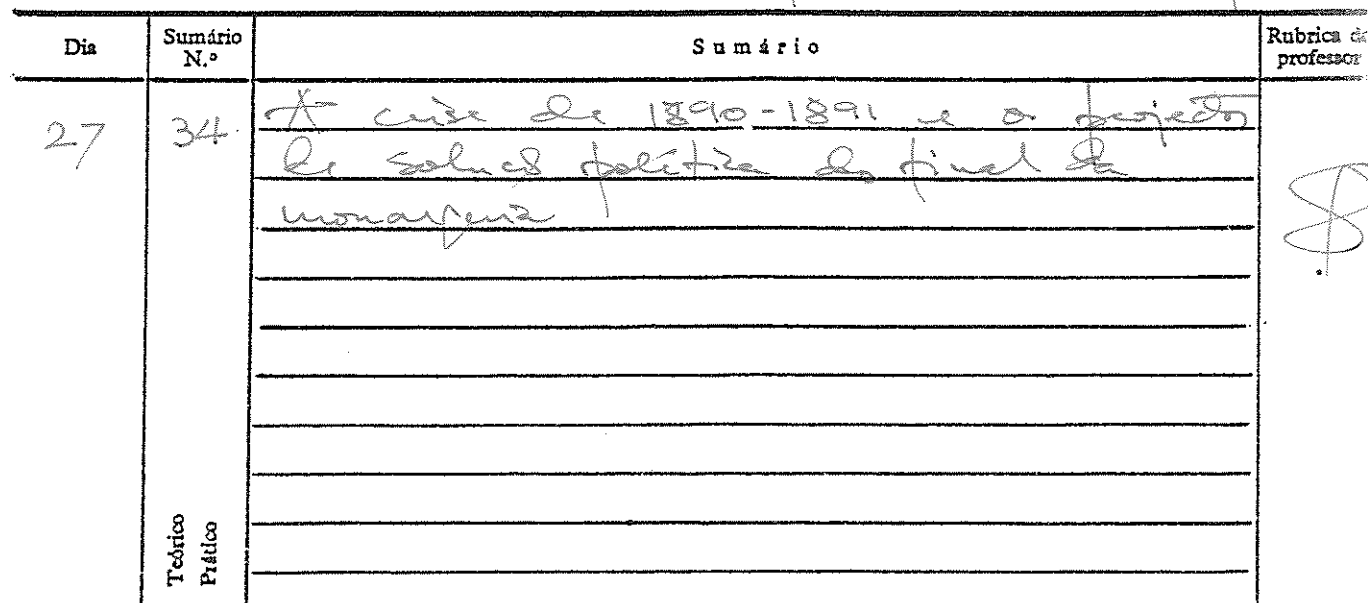 Dia Sumário N.º Sumário Rubrica do professor
27 34 A crise de 1890-1891 e o projecto
de solução política do final da
monarquia
Teórico
Prático